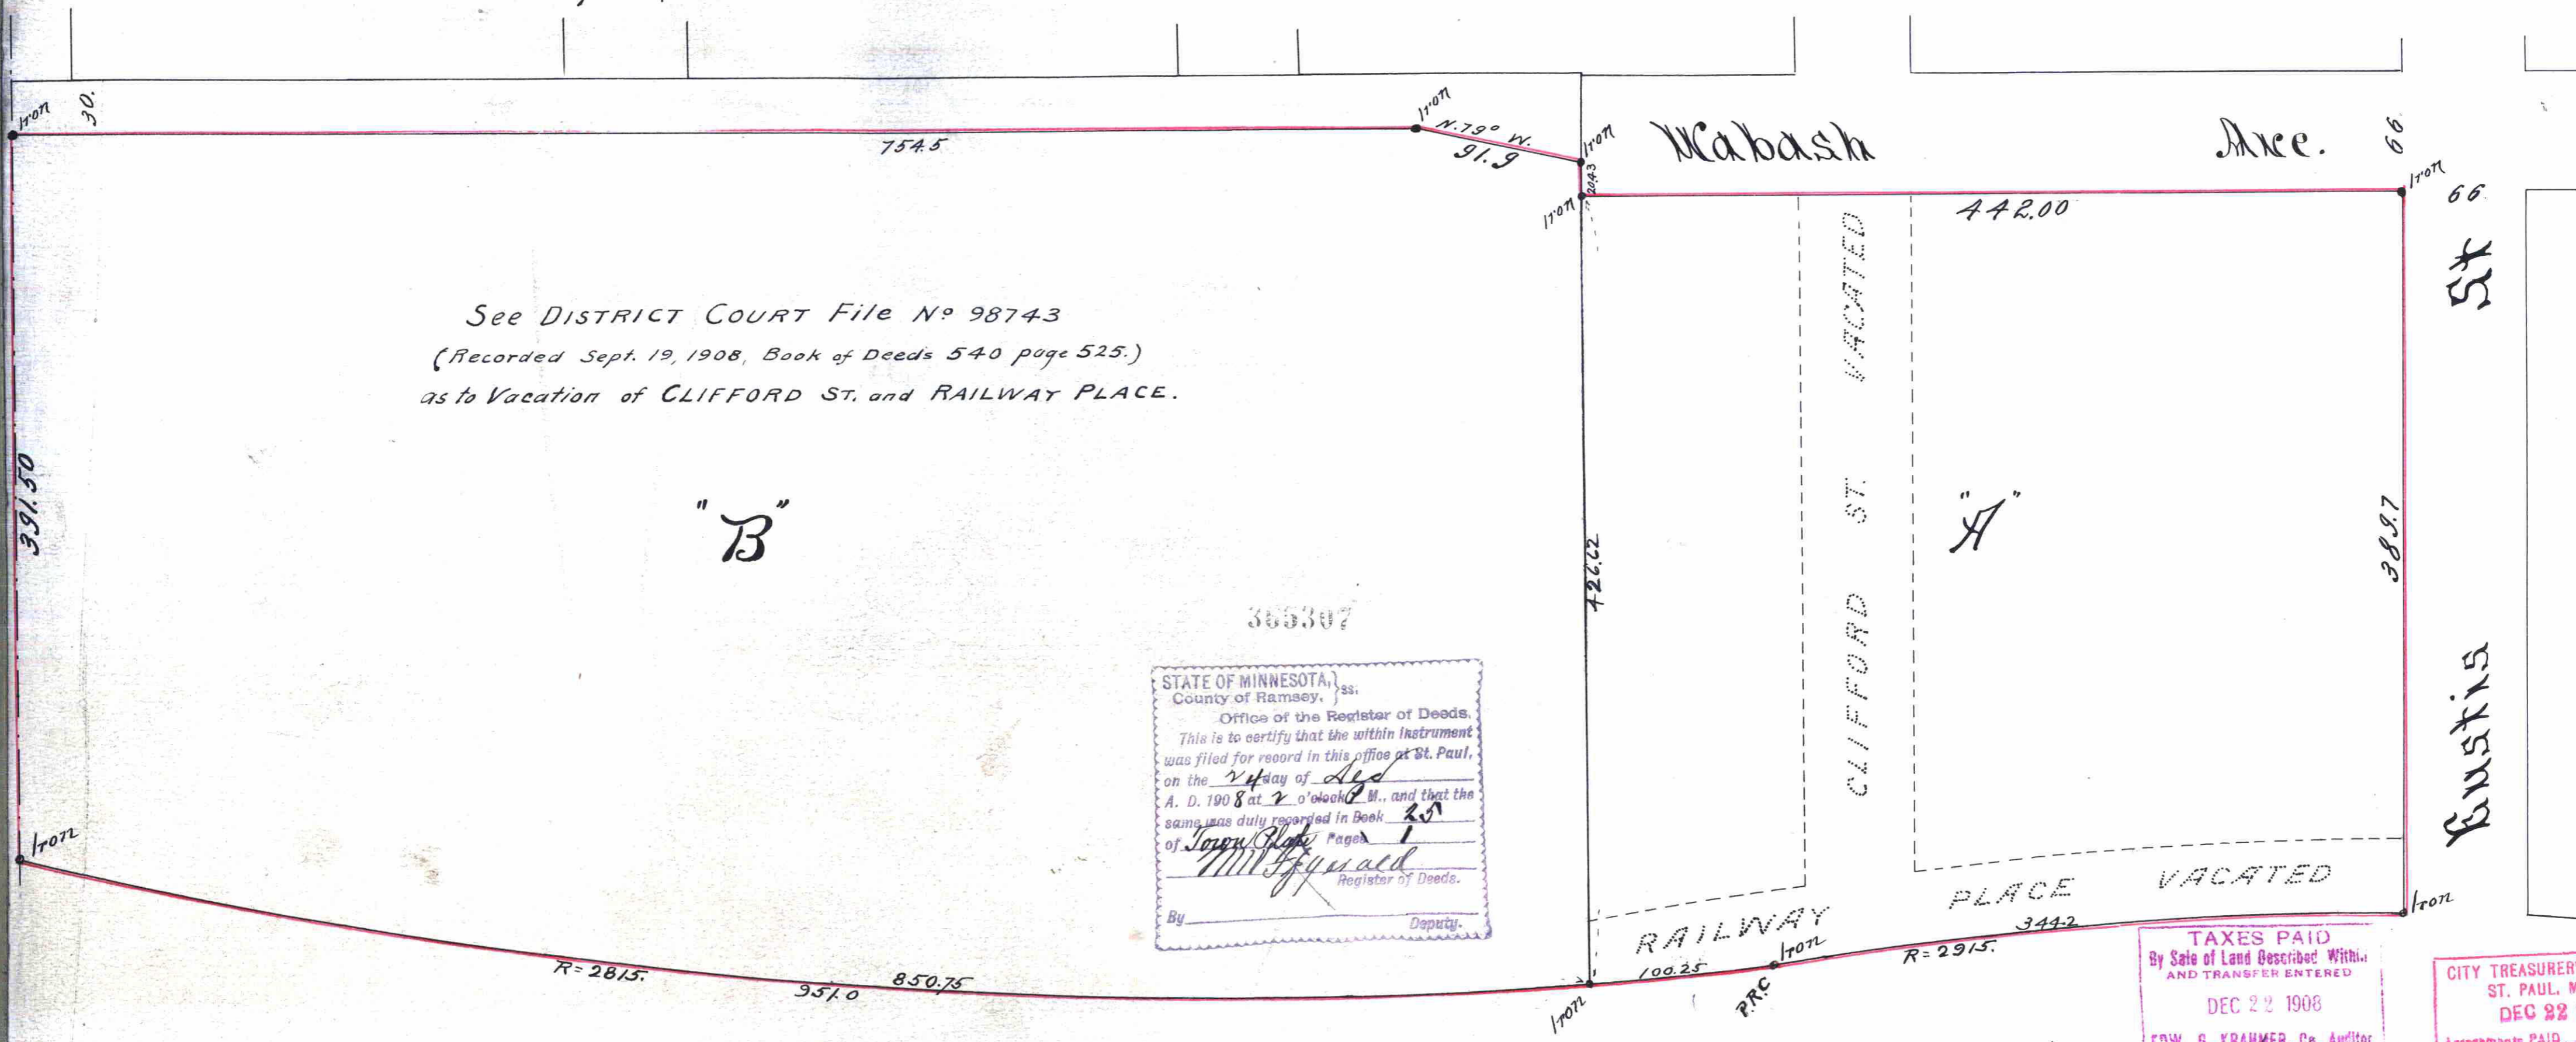 Iron
30.
754.5
Iron
N. 79° W.
91.9
Iron
20.43
Iron
Wabash Ave.
66
Iron
66
442.00
See DISTRICT COURT File No 98743
(Recorded Sept. 19, 1908, Book of Deeds 540 page 525.)
as to Vacation of CLIFFORD ST. and RAILWAY PLACE.
391.50
"B"
426.62
CLIFFORD ST. VACATED
"A"
389.7
Eustis St
365307
STATE OF MINNESOTA, } ss.
County of Ramsey.
Office of the Register of Deeds.
This is to certify that the within instrument
was filed for record in this office at St. Paul,
on the 24 day of Dec
A. D. 1908 at 2 o'clock P M., and that the
same was duly recorded in Book 25
of Town Plats Page 1
Register of Deeds.
By Deputy.
Iron
R=2815.
951.0
850.75
Iron
RAILWAY PLACE VACATED
100.25
Iron
P.R.C
R=2915.
344.2
Iron
TAXES PAID
By Sale of Land Described Within
AND TRANSFER ENTERED
DEC 22 1908
EDW. G. KRAHMER, Co. Auditor
CITY TREASURER
ST. PAUL, M
DEC 22
PAID